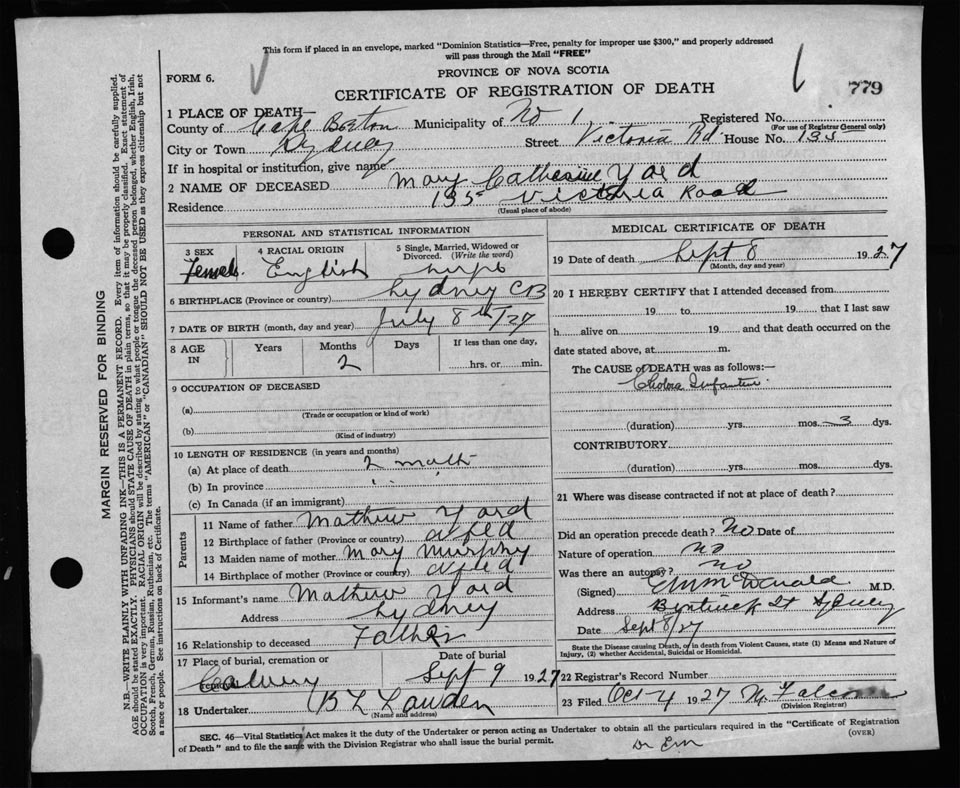 This form if placed in an envelope, marked "Dominion Statistics—Free, penalty for improper use $300," and properly addressed
will pass through the Mail "FREE"
FORM 6.
PROVINCE OF NOVA SCOTIA
779
CERTIFICATE OF REGISTRATION OF DEATH
1 PLACE OF DEATH—
County of Cape Breton Municipality of No 1, Registered No.
(For use of Registrar General only)
City or Town Sydney Street Victoria Rd. House No. 135
If in hospital or institution, give name
2 NAME OF DECEASED Mary Catherine Yard
Residence 135 Victoria Road
(Usual place of abode)
PERSONAL AND STATISTICAL INFORMATION
3 SEX 4 RACIAL ORIGIN 5 Single, Married, Widowed or Divorced. (Write the word)
Female English
6 BIRTHPLACE (Province or country) Sydney CB
7 DATE OF BIRTH (month, day and year) July 8th/27
8 AGE IN Years Months Days If less than one day,
2 hrs. or min.
9 OCCUPATION OF DECEASED
(a)
(Trade or occupation or kind of work)
(b)
(Kind of industry)
10 LENGTH OF RESIDENCE (in years and months)
(a) At place of death 2 
(b) In province " "
(c) In Canada (if an immigrant)
Parents
11 Name of father Mathew Yard
12 Birthplace of father (Province or country)
13 Maiden name of mother Mary Murphy
14 Birthplace of mother (Province or country)
15 Informant's name Mathew Yard
Address Sydney
16 Relationship to deceased Father
17 Place of burial, cremation or removal Date of burial
Calvary Sept 9 1927
18 Undertaker
(Name and address)
MEDICAL CERTIFICATE OF DEATH
19 Date of death Sept 8 1927
(Month, day and year)
20 I HEREBY CERTIFY that I attended deceased from
19 to 19 that I last saw
h alive on 19 and that death occurred on the
date stated above, at m.
The CAUSE OF DEATH was as follows:—
Cholera Infantum
(duration) yrs. mos. 3 dys.
CONTRIBUTORY
(duration) yrs. mos. dys.
21 Where was disease contracted if not at place of death?
Did an operation precede death? No Date of
Nature of operation no
Was there an autopsy? no
(Signed) McDonald M.D.
Address St Sydney
Date Sept 8/27
State the Disease causing Death, or in death from Violent Causes, state (1) Means and Nature of
Injury, (2) whether Accidental, Suicidal or Homicidal.
22 Registrar's Record Number
23 Filed Oct 4 1927
(Division Registrar)
SEC. 46—Vital Statistics Act makes it the duty of the Undertaker or person acting as Undertaker to obtain all the particulars required in the "Certificate of Registration
of Death" and to file the same with the Division Registrar who shall issue the burial permit.
(OVER)
MARGIN RESERVED FOR BINDING
N.B.—WRITE PLAINLY WITH UNFADING INK—THIS IS A PERMANENT RECORD. Every item of information should be carefully supplied.
AGE should be stated EXACTLY. PHYSICIANS should STATE CAUSE OF DEATH in plain terms, so that it may be properly classified. Exact statement of
OCCUPATION is very important. RACIAL ORIGIN will be described by stating to what people or tongue the deceased person belonged, whether English, Irish,
Scotch, French, German, Russian, Ruthenian, etc. The terms "AMERICAN" or "CANADIAN" SHOULD NOT BE USED as they express citizenship but not
a race or people. See instructions on back of Certificate.